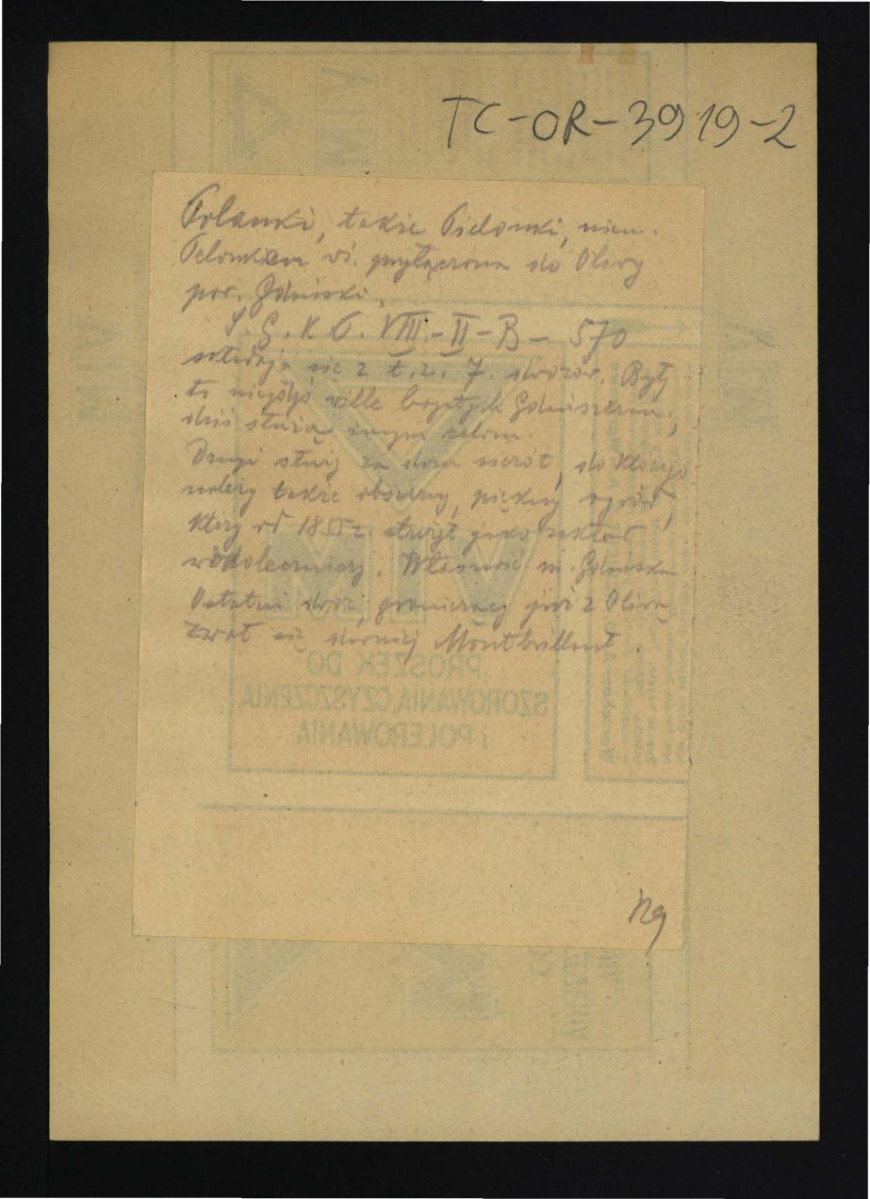 TC-OR-3919-2
Polanki, także Pielonki, niem.
Pelonken wś. przyłączona do Oliwy
pow. Gdański.
S.G.K.P. VIII-II-B-570
składają się z t.z. 7. dworów. Były
to niegdyś wille bogatych Gdańszczan,
dziś służą innym celom.
Drugi służy za dom sierot, do którego
należy także obszerny, piękny ogród,
który od służył jako zakład
wodoleczniczy. Własność m. Gdańska
Ostatni dwór, graniczący już z Oliwą
zwał się dawniej Montbrillant.
PROSZEK DO
SZOROWANIA, CZYSZCZENIA
i POLEROWANIA
VIM
Ng